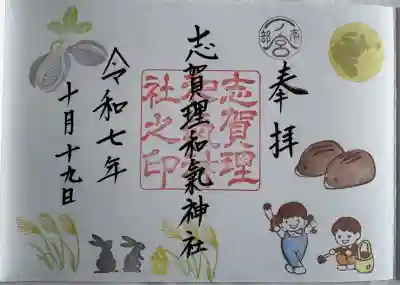 奉拝
志賀理和氣神社
令和七年
十月十九日
南部
一ノ宮
志賀理
和氣神
社之印